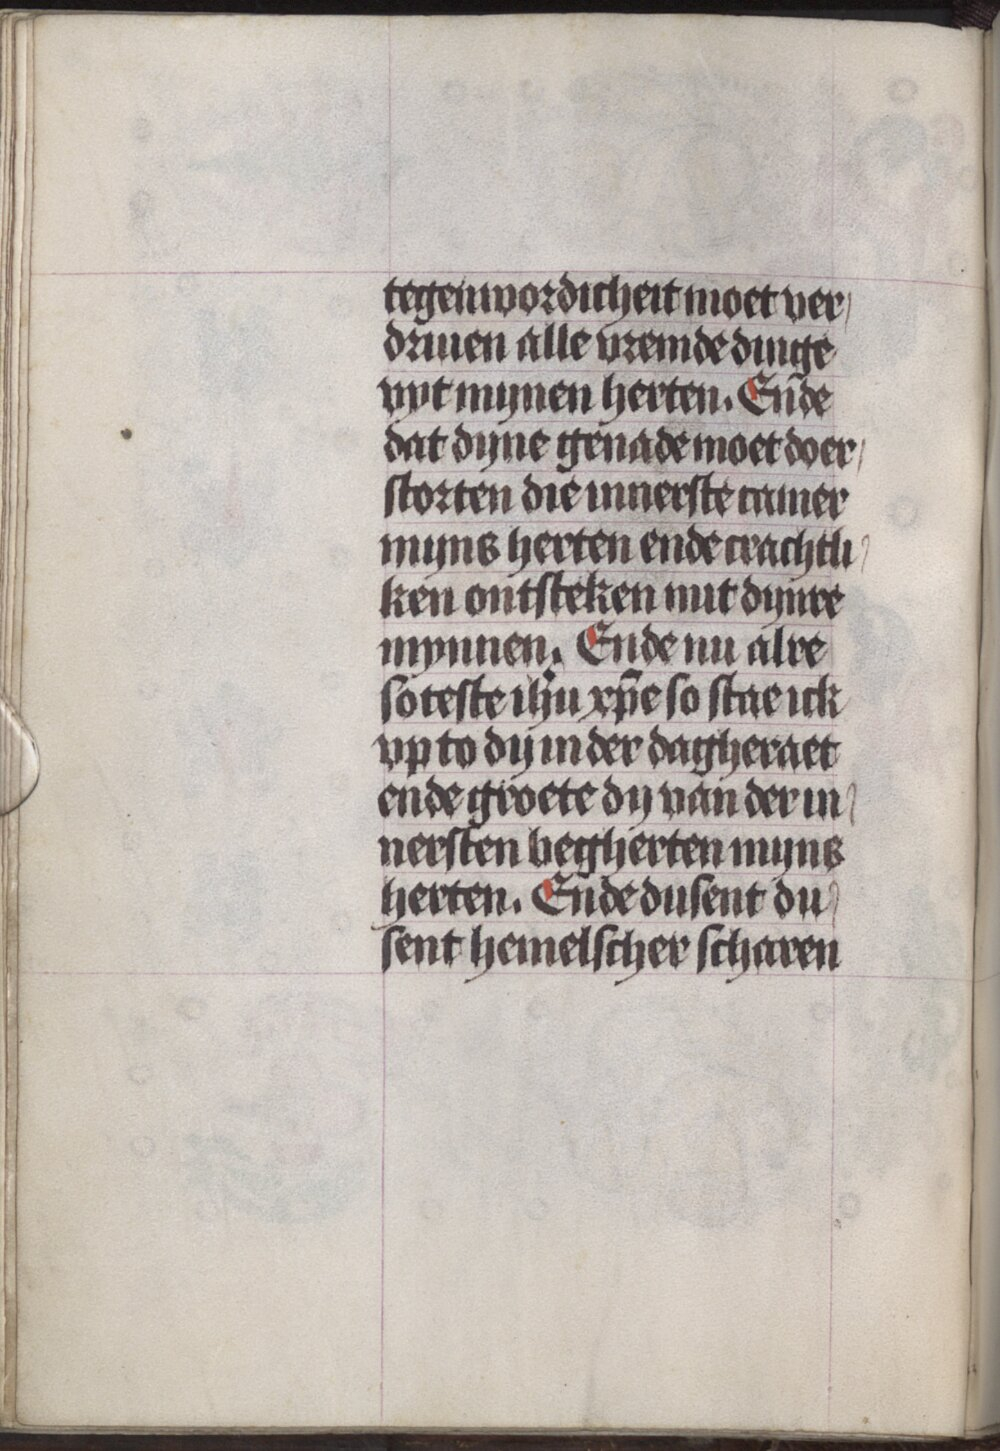 tegenwordicheit moet ver/
driuen alle vremde dinge
vyt mynen herten. En̄de
dat dyne genade moet doer/
storten die innerste camer
myns herten ende crachtli/
ken ontsteken mit dynre
mynnen. Ende nu alre
soteste ih̄u xp̄e so stae ick
vp to dy in der dagheraet
ende groete dy van der in/
nersten begherten myns
herten. En̄de dusent du/
sent hemelscher scharen